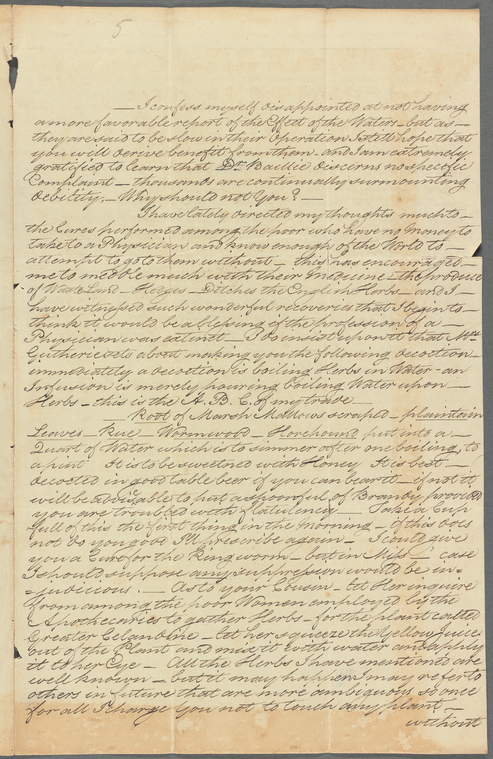 5
— I confess myself disappointed at not having
a more favorable report of the Effect of the Waters — but as —
they are said to be slow in their operation I still hope that
you will derive benefit from them. and I am extremely
gratified to learn that Dr Baillie discerns no specific
Complaint — thousands are continually surmounting
debility — Why should not You? —
I have lately directed my thoughts much to —
the Cures performed among the poor who have no Money to
take to a Physician and know enough of the World to —
attempt to go to them without — this has encouraged —
me to meddle much with their Medicine — the produce
of Waste Land — Hedges — Ditches the English Herbs — and I —
have witnessed such wonderful recoveries that I begin to —
think it would be a blessing if the profession of a —
Physician was extinct — I do insist upon it that Mrs
Gutherie sets about making you the following decoction —
immediately a decoction is boiling Herbs in Water — an
Infusion is merely pouring boiling Water upon —
Herbs — this is the A. B. C. of my trade —
Root of Marsh Mallows scraped — plaintain
Leaves — Rue — Wormwood — Horehound put into a —
Quart of Water which is to simmer after one boiling, to
a pint. It is to be sweetned with Honey It is best —
decocted in good table beer if you can bear it — if not it
will be advisable to put a spoonful of Brandy provided
you are troubled with flatulency — Take a Cup
full of this the first thing in the morning — if this does
not do you good I'll prescribe again — I could give
you a Cure for the Ringworm — but in Miss case
I should suppose any suppression would be in-
=judicious. — As to your Cousin — let Her inquire
from among the poor Women employed by the
Apothecaries to gather Herbs — for the plant called
Greater Celandine — let her squeeze the Yellow Juice
out of the Plant and mix it with water and apply
it to her Eye — All the Herbs I have mentioned are
well known — but it may happen I may refer to
others in future that are more ambiguous so once
for all I charge You not to touch any plant —
without